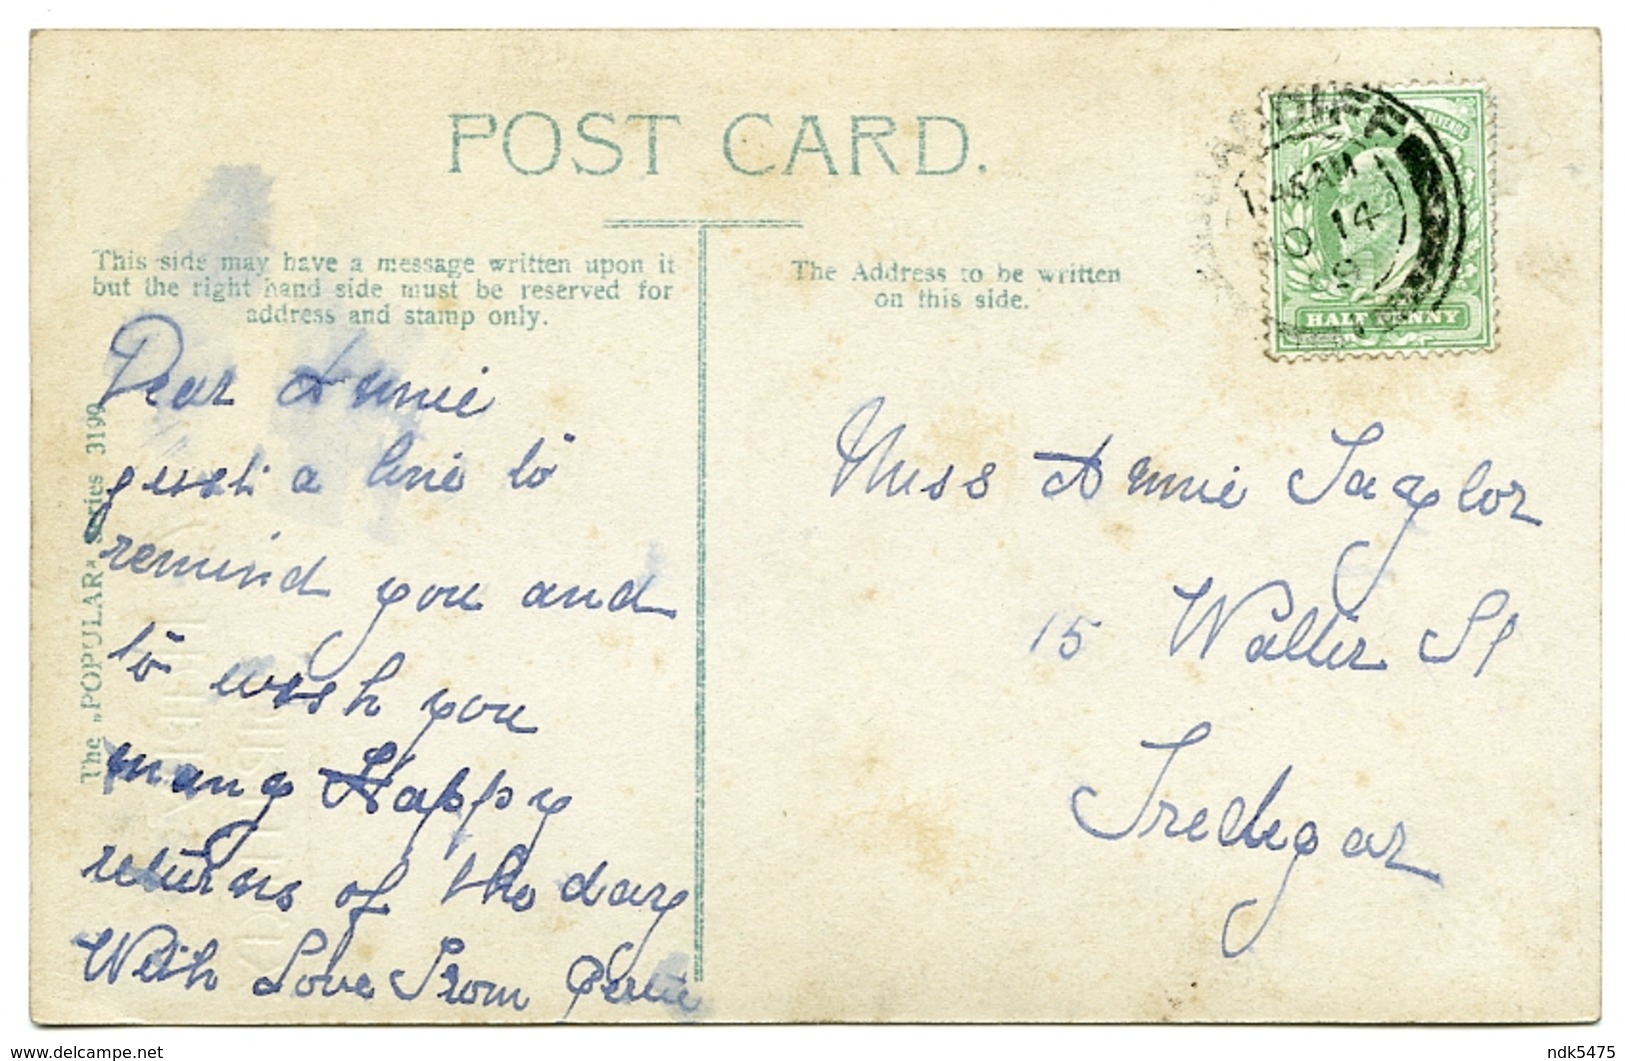 POST CARD.
This side may have a message written upon it
but the right hand side must be reserved for
address and stamp only.
The Address to be written
on this side.
The „POPULAR" Series 3199
REVENUE
CARDIFF
AM
NO 14
HALF PENNY
Dear Annie
just a line to
remind you and
to wish you
many Happy
returns of the day
With Love From
Miss Annie Taylor
15 Walter St
Tredegar
delcampe.net
ndk5475